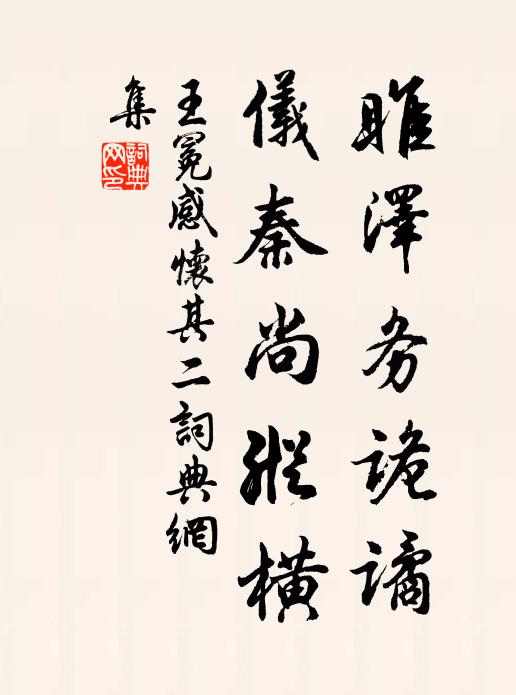 睢澤务詭譎
儀秦尚縱橫
王冕感懷其二詞典網
集
詞典网印